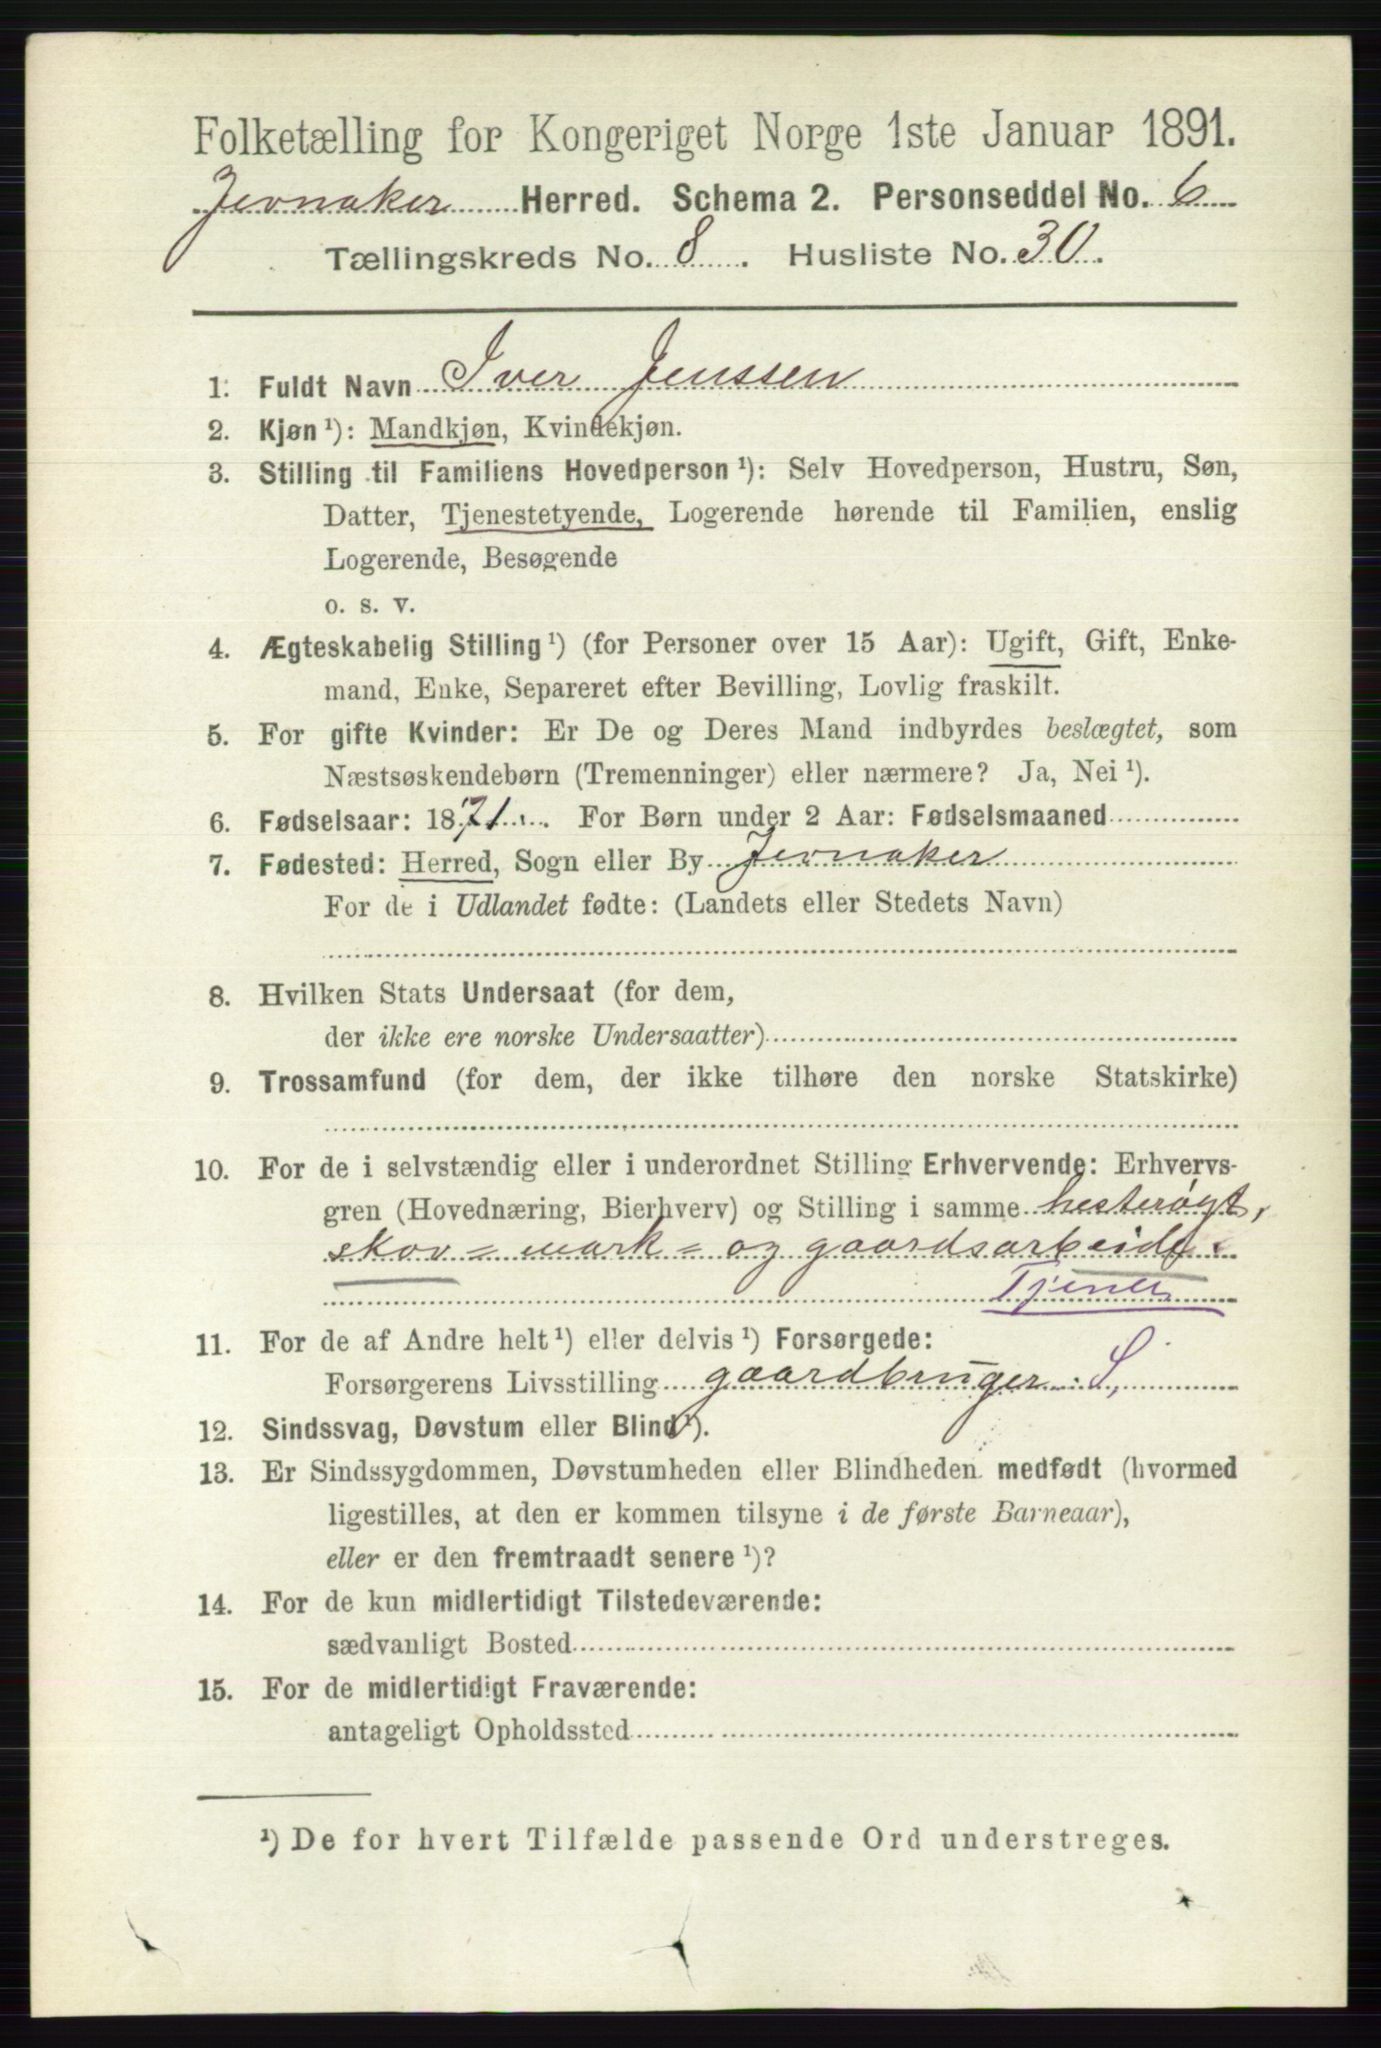 Folketælling for Kongeriget Norge 1ste Januar 1891.
Jevnaker Herred. Schema 2. Personseddel No. 6
Tællingskreds No. 8. Husliste No. 30.
1. Fuldt Navn Iver Jenssen
2. Kjøn ¹): Mandkjøn, Kvindekjøn.
3. Stilling til Familiens Hovedperson ¹): Selv Hovedperson, Hustru, Søn,
Datter, Tjenestetyende, Logerende hørende til Familien, enslig
Logerende, Besøgende
o. s. v.
4. Ægteskabelig Stilling ¹) (for Personer over 15 Aar): Ugift, Gift, Enke-
mand, Enke, Separeret efter Bevilling, Lovlig fraskilt.
5. For gifte Kvinder: Er De og Deres Mand indbyrdes beslægtet, som
Næstsøskendebørn (Tremenninger) eller nærmere? Ja, Nei ¹).
6. Fødselsaar: 1871. For Børn under 2 Aar: Fødselsmaaned
7. Fødested: Herred, Sogn eller By Jevnaker
For de i Udlandet fødte: (Landets eller Stedets Navn)
8. Hvilken Stats Undersaat (for dem,
der ikke ere norske Undersaatter)
9. Trossamfund (for dem, der ikke tilhøre den norske Statskirke)
10. For de i selvstændig eller i underordnet Stilling Erhvervende: Erhvervs-
gren (Hovednæring, Bierhverv) og Stilling i samme hesterøgt,
skov = mark = og gaardsarbeide
Tjener
11. For de af Andre helt ¹) eller delvis ¹) Forsørgede:
Forsørgerens Livsstilling gaardbruger. S,
12. Sindssvag, Døvstum eller Blind ¹).
13. Er Sindssygdommen, Døvstumheden eller Blindheden medfødt (hvormed
ligestilles, at den er kommen tilsyne i de første Barneaar),
eller er den fremtraadt senere ¹)?
14. For de kun midlertidigt Tilstedeværende:
sædvanligt Bosted
15. For de midlertidigt Fraværende:
antageligt Opholdssted
¹) De for hvert Tilfælde passende Ord understreges.